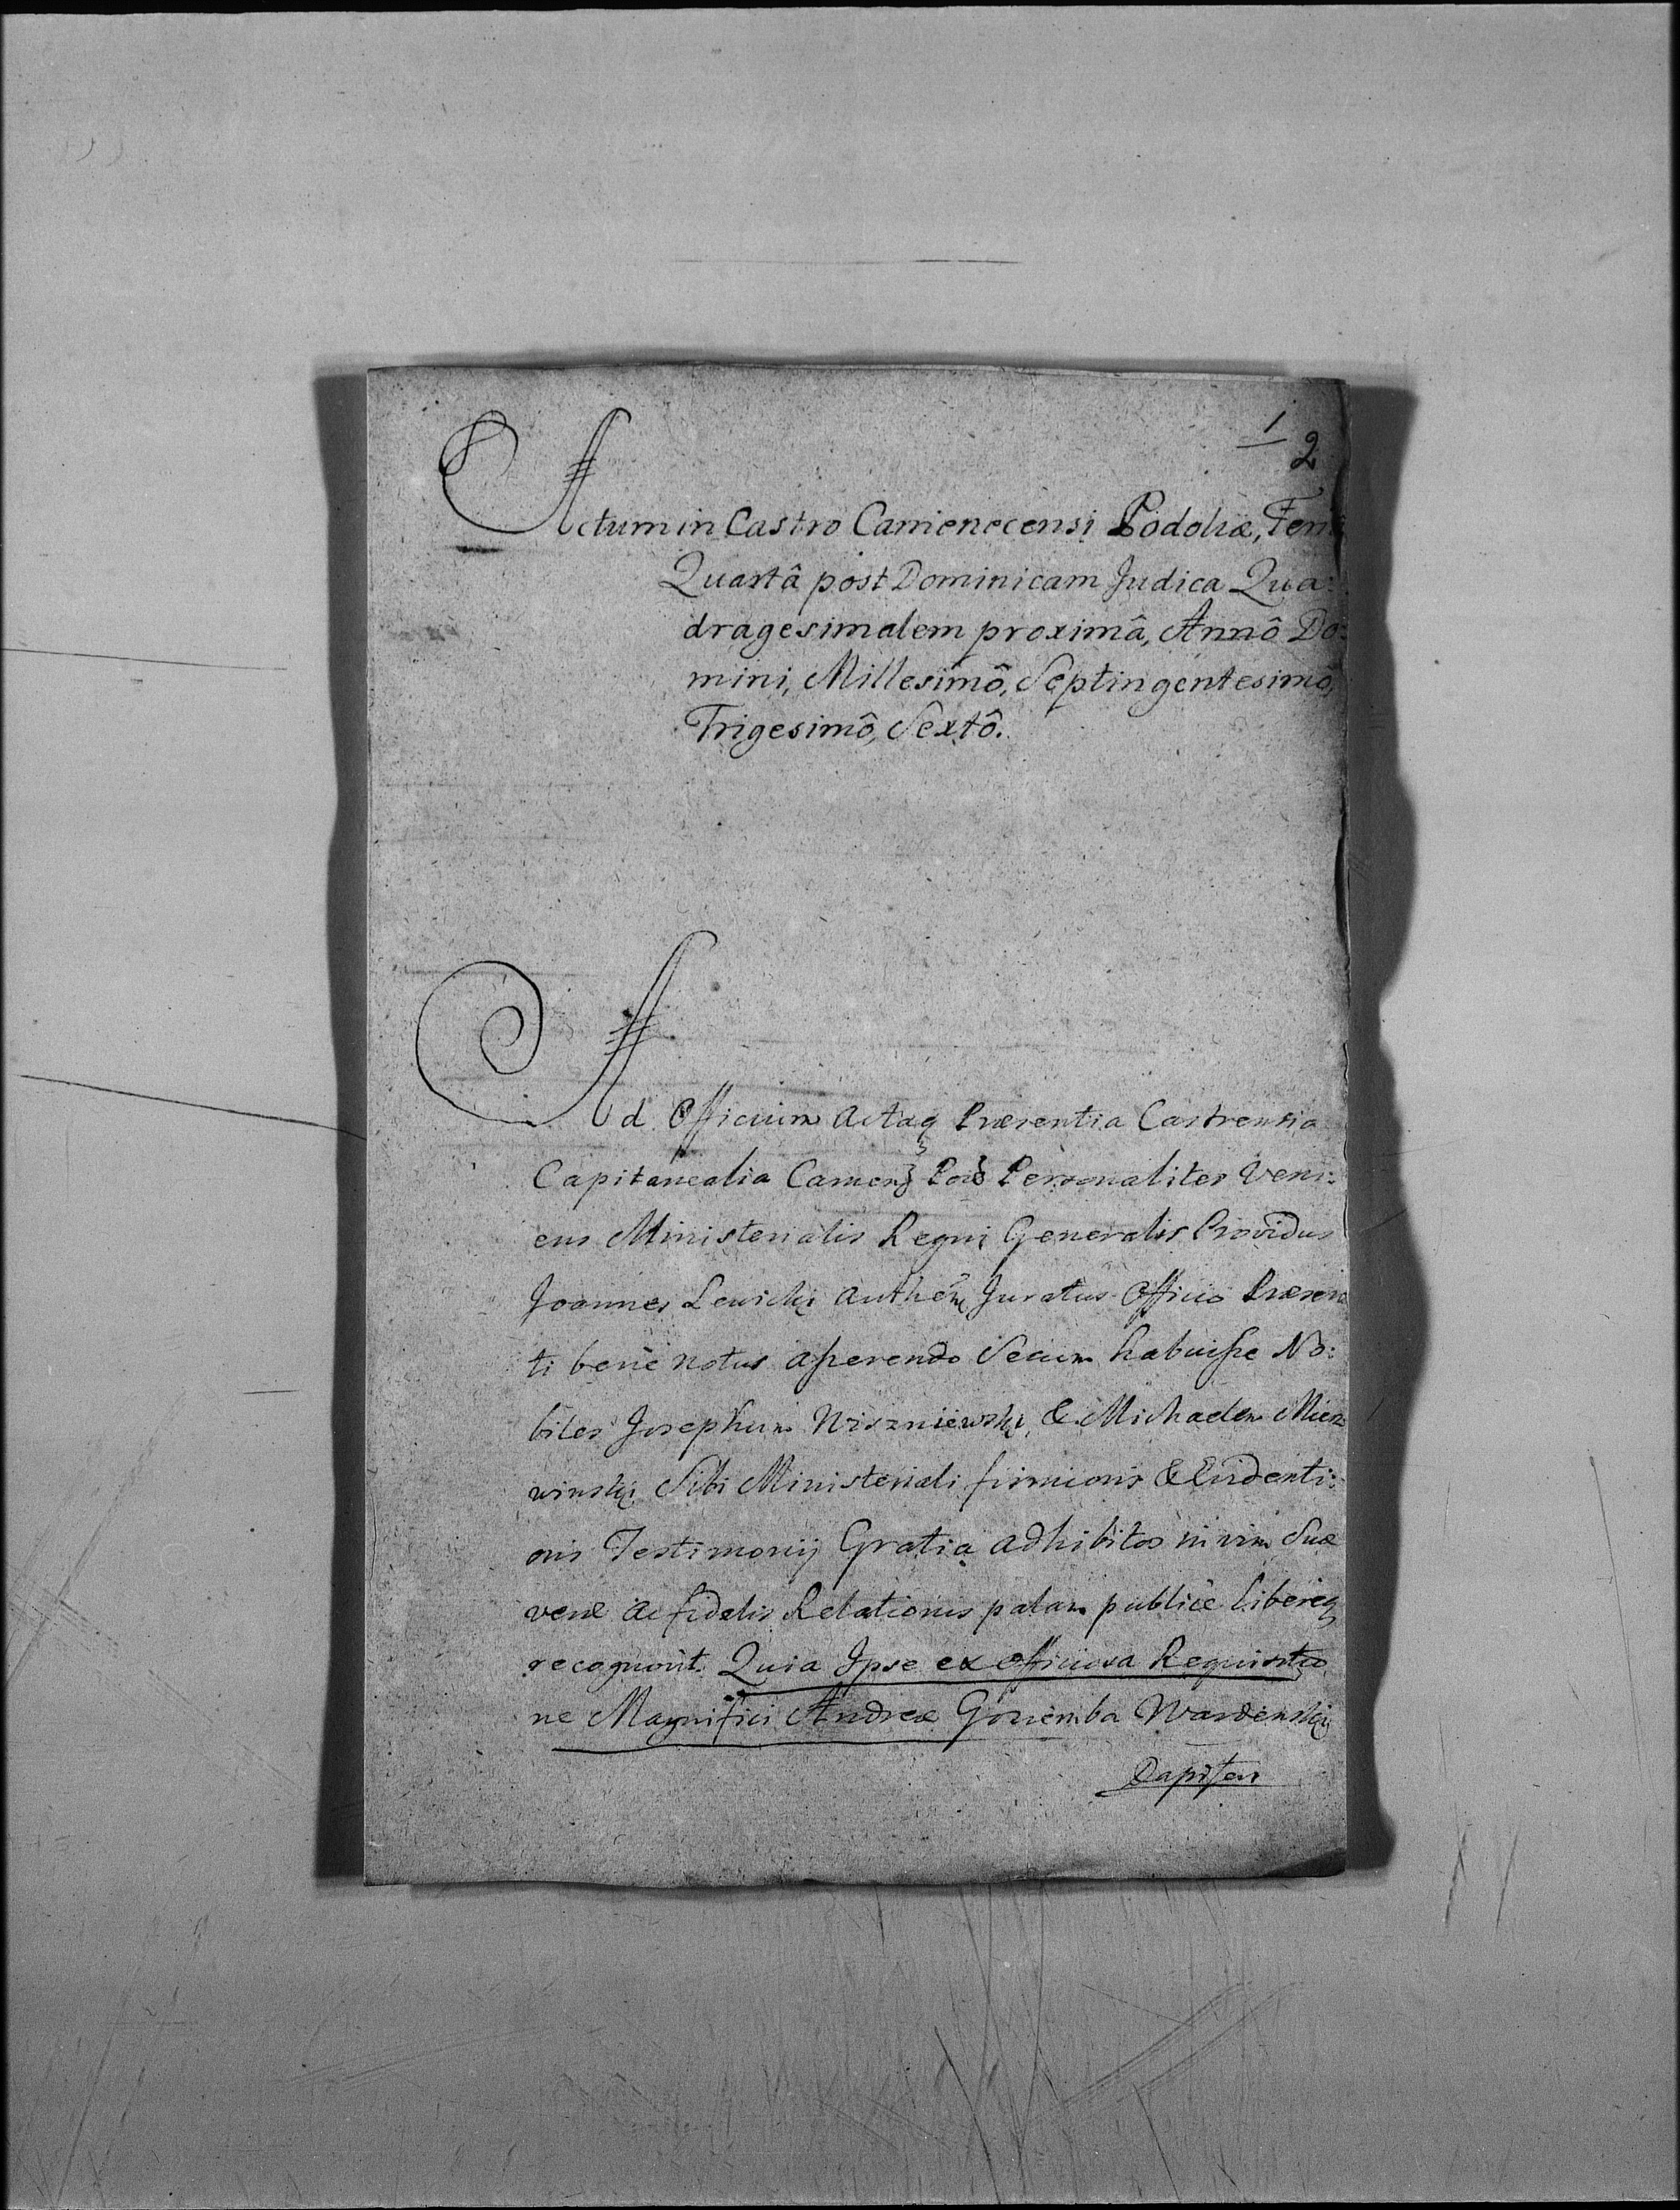 1
2
Actum in Castro Camenecensi Podoliæ, Feri
Quartâ post Dominicam Judica Qua:
dragesimalem proximâ, Annô Do:
mini, Millesimô, Septingentesimô,
Trigesimô, Sextô.
Ad Officium Actaq Præsentia Castrensia
Capitanealia Camen Pod Personaliter Veni:
ens Ministerialis Regni Generalis Providus
Joannes Lewicki Authen Juratus Officio Præsen
ti benè notus asserendo Secum habuisse No:
biles Josephum Wiszniewski, & Michaelem Mierz
winski Sibi Ministeriali firmioris & Evidenti:
oris Testimonij Gratia adhibitos in vim Suæ
veræ ac fidelis Relationis palam publicè libereq
recognovit. Quia Ipse ex officiosa Requisitio
ne Magnifici Andreæ Goziemba Wardenski
Dapiferi